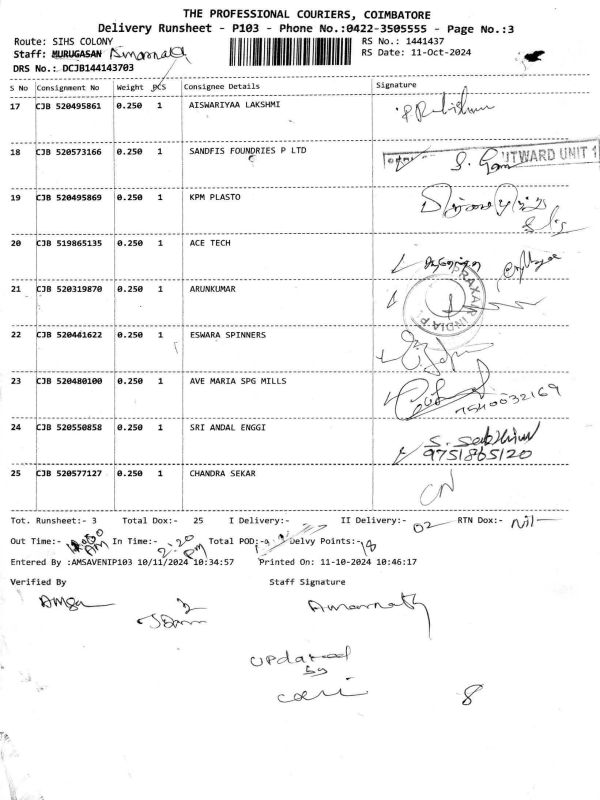 THE PROFESSIONAL COURIERS, COIMBATORE
Delivery Runsheet - P103 - Phone No.:0422-3505555 - Page No.:3
Route: SIHS COLONY RS No.: 1441437
Staff: MURUGASAN Amarnath RS Date: 11-Oct-2024
DRS No.: DCJB144143703
S No Consignment No Weight PCS Consignee Details Signature
17 CJB 520495861 0.250 1 AISWARIYAA LAKSHMI
18 CJB 520573166 0.250 1 SANDFIS FOUNDRIES P LTD
OUTWARD UNIT 1
19 CJB 520495869 0.250 1 KPM PLASTO
20 CJB 519865135 0.250 1 ACE TECH
21 CJB 520319870 0.250 1 ARUNKUMAR
PRAXAIR INDIA P
22 CJB 520441622 0.250 1 ESWARA SPINNERS
23 CJB 520480100 0.250 1 AVE MARIA SPG MILLS
7540032169
24 CJB 520550858 0.250 1 SRI ANDAL ENGGI
9751865120
25 CJB 520577127 0.250 1 CHANDRA SEKAR
CN
Tot. Runsheet:- 3 Total Dox:- 25 I Delivery:- II Delivery:- 02 RTN Dox:- Nil
Out Time:- AM In Time:- 2:20 PM Total POD:- Delvy Points:- 18
Entered By :AMSAVENIP103 10/11/2024 10:34:57 Printed On: 11-10-2024 10:46:17
Verified By Staff Signature
Amarnath
Updated
by
8